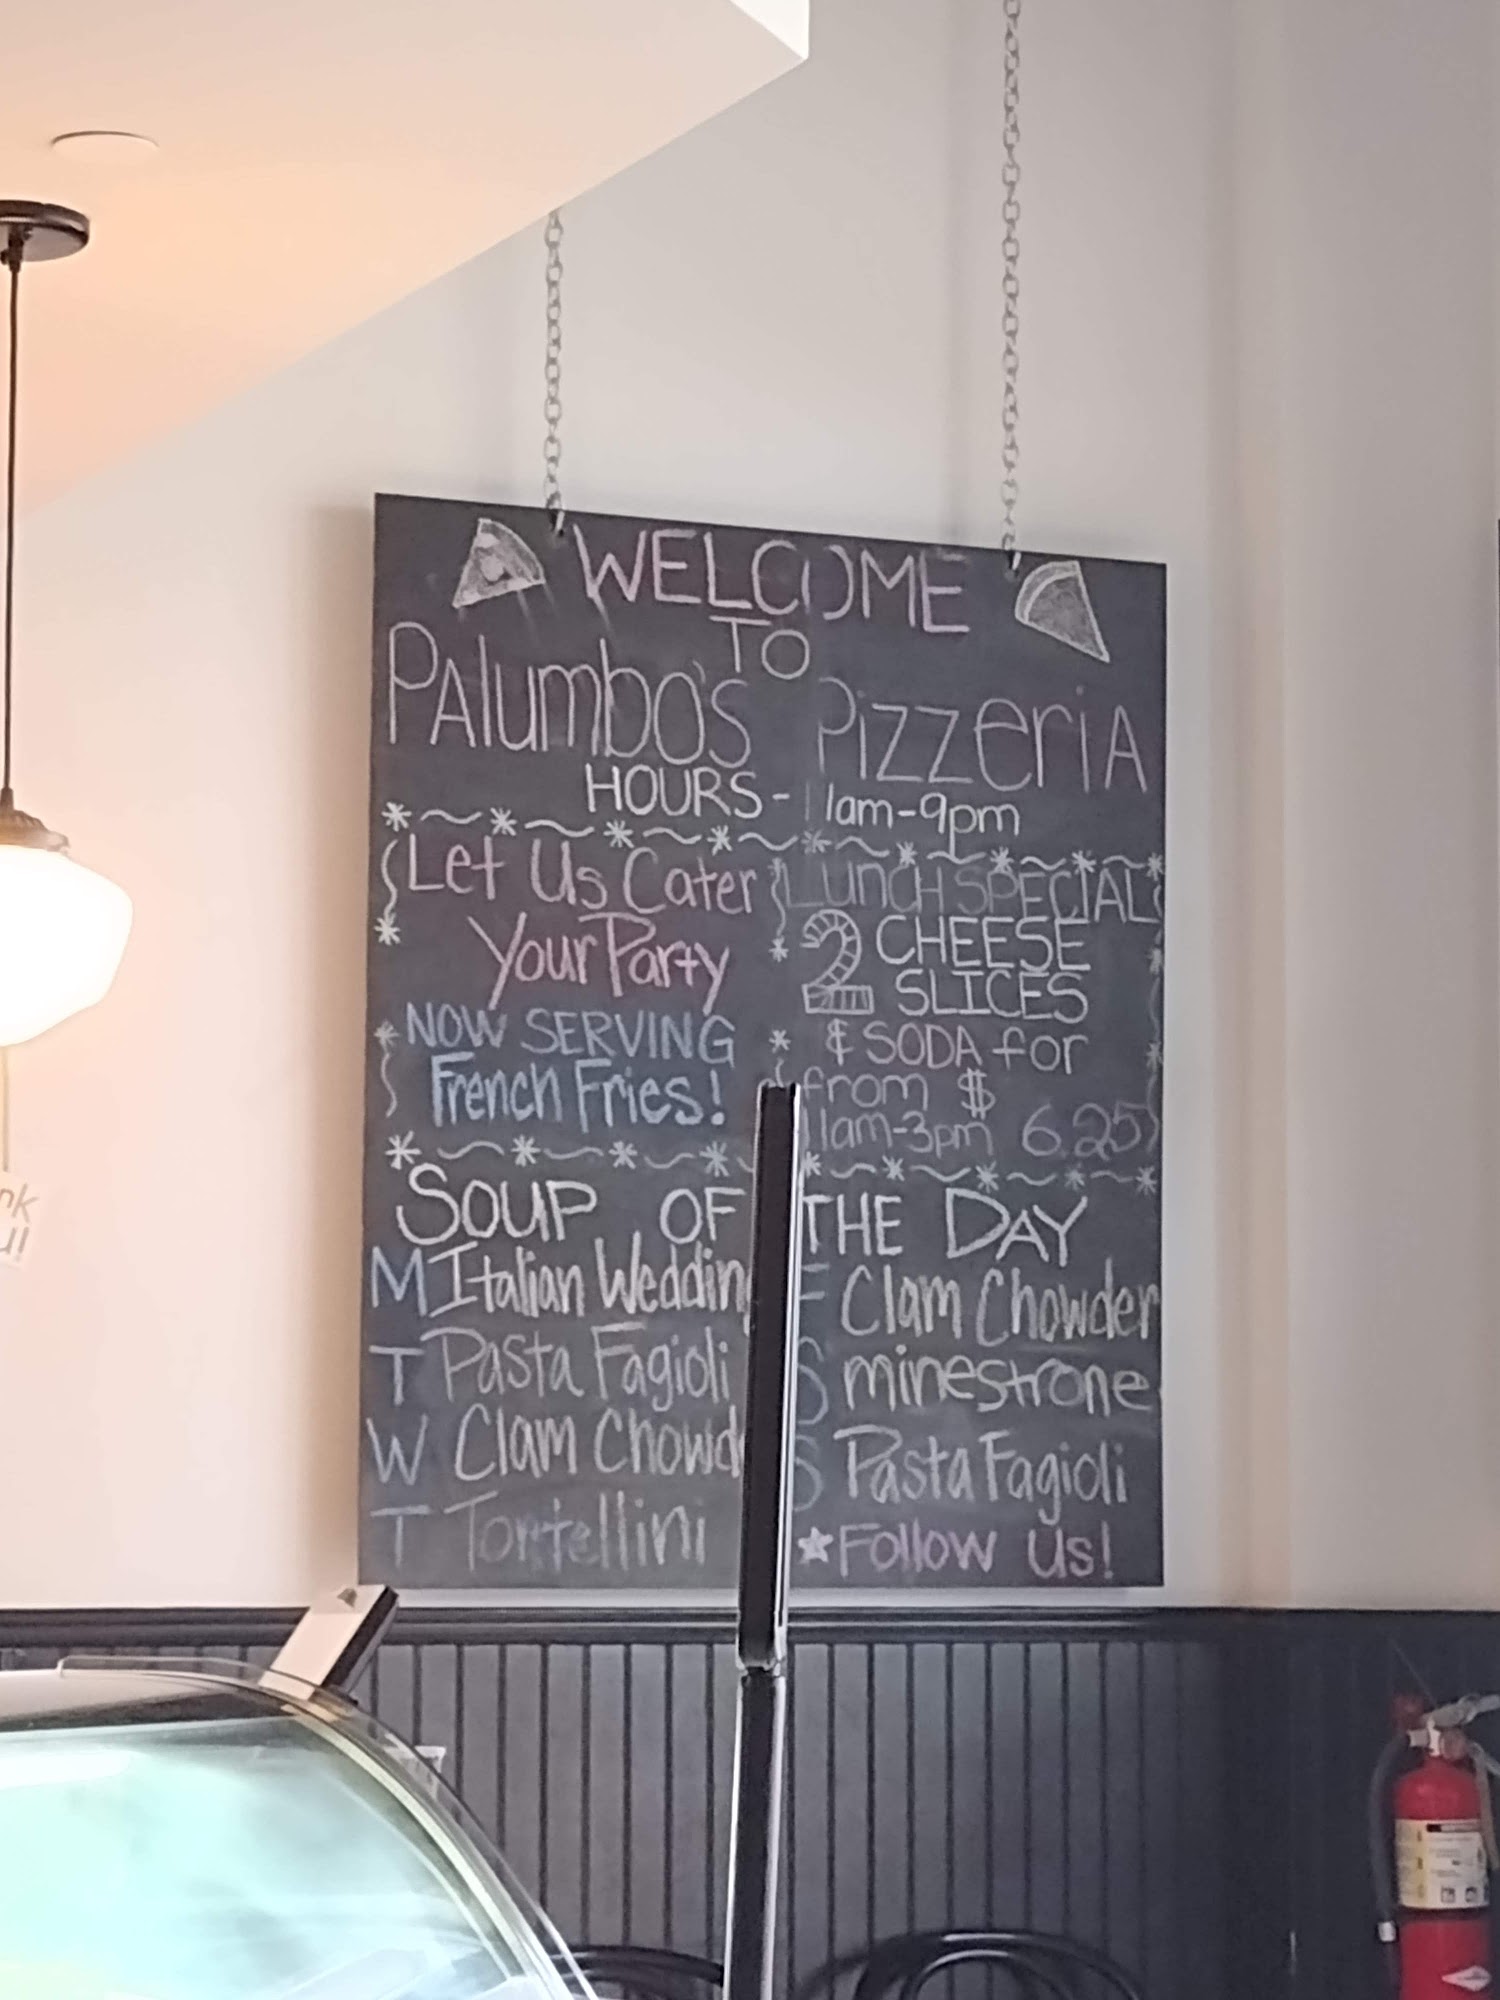 WELCOME
TO
PAlumbo's PizzeriA
HOURS- 11am-9pm
Let Us Cater
Your Party
NOW SERVING
French Fries!
LUNCH SPECIAL
2 CHEESE
SLICES
& SODA for
from $
11am-3pm 6.25
SOUP OF THE DAY
M Italian Wedding
T Pasta Fagioli
W Clam Chowd
T Tortellini
F Clam Chowder
S minestrone
S Pasta Fagioli
Follow Us!